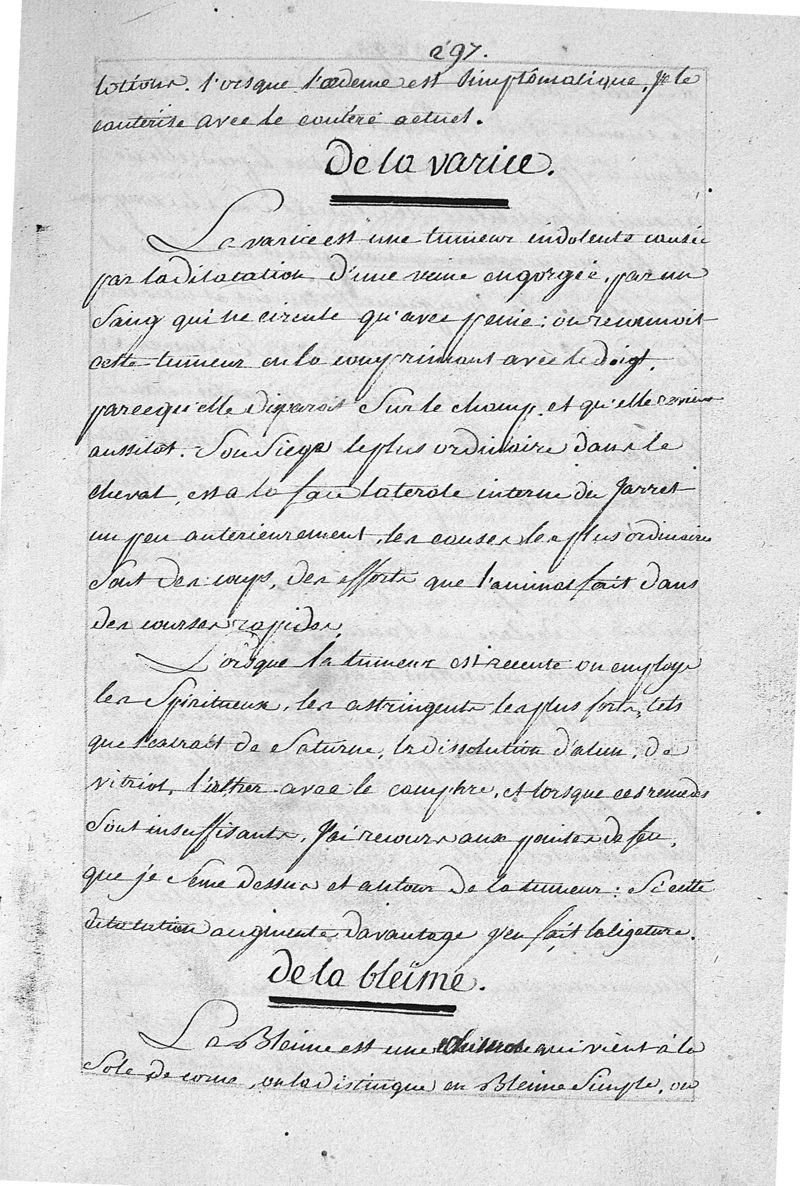 297.
lotions. lorsque l'oedeme est simptômatique, je le
cauterise avec le cautére actuel.
De la varice.
La varice est une tumeur indolente causée
par la dilatation d'une veine engorgée, par un
sang qui ne circule qu'avec peine: on reconnoit
cette tumeur en la comprimant avec le doigt,
parcequ'elle disparoit sur le champ, et qu'elle revient
aussitot. Son siege le plus ordinaire dans le
cheval, est a la face laterale interne du Jarret
un peu anterieurement, les causes les plus ordinaires
sont des coups, des efforts que l'animal fait dans
des courses rapides,
Lorsque la tumeur est recente on employe
les spiritueux, les astringents les plus forts, tels
que l'extrait de Saturne, la dissolution d'alun, de
vitriol, l'ather avec le camphre, et lorsque ces remedes
sont insuffisants, J'ai recours aux pointes de feu,
que je seme dessus et autour de la tumeur: Si cette
dilatation augmente davantage j'en fait la ligature.
de la bleime.
La Bleime est une qui vient à la
Sole de corne, on la distingue en Bleime Simple, ou